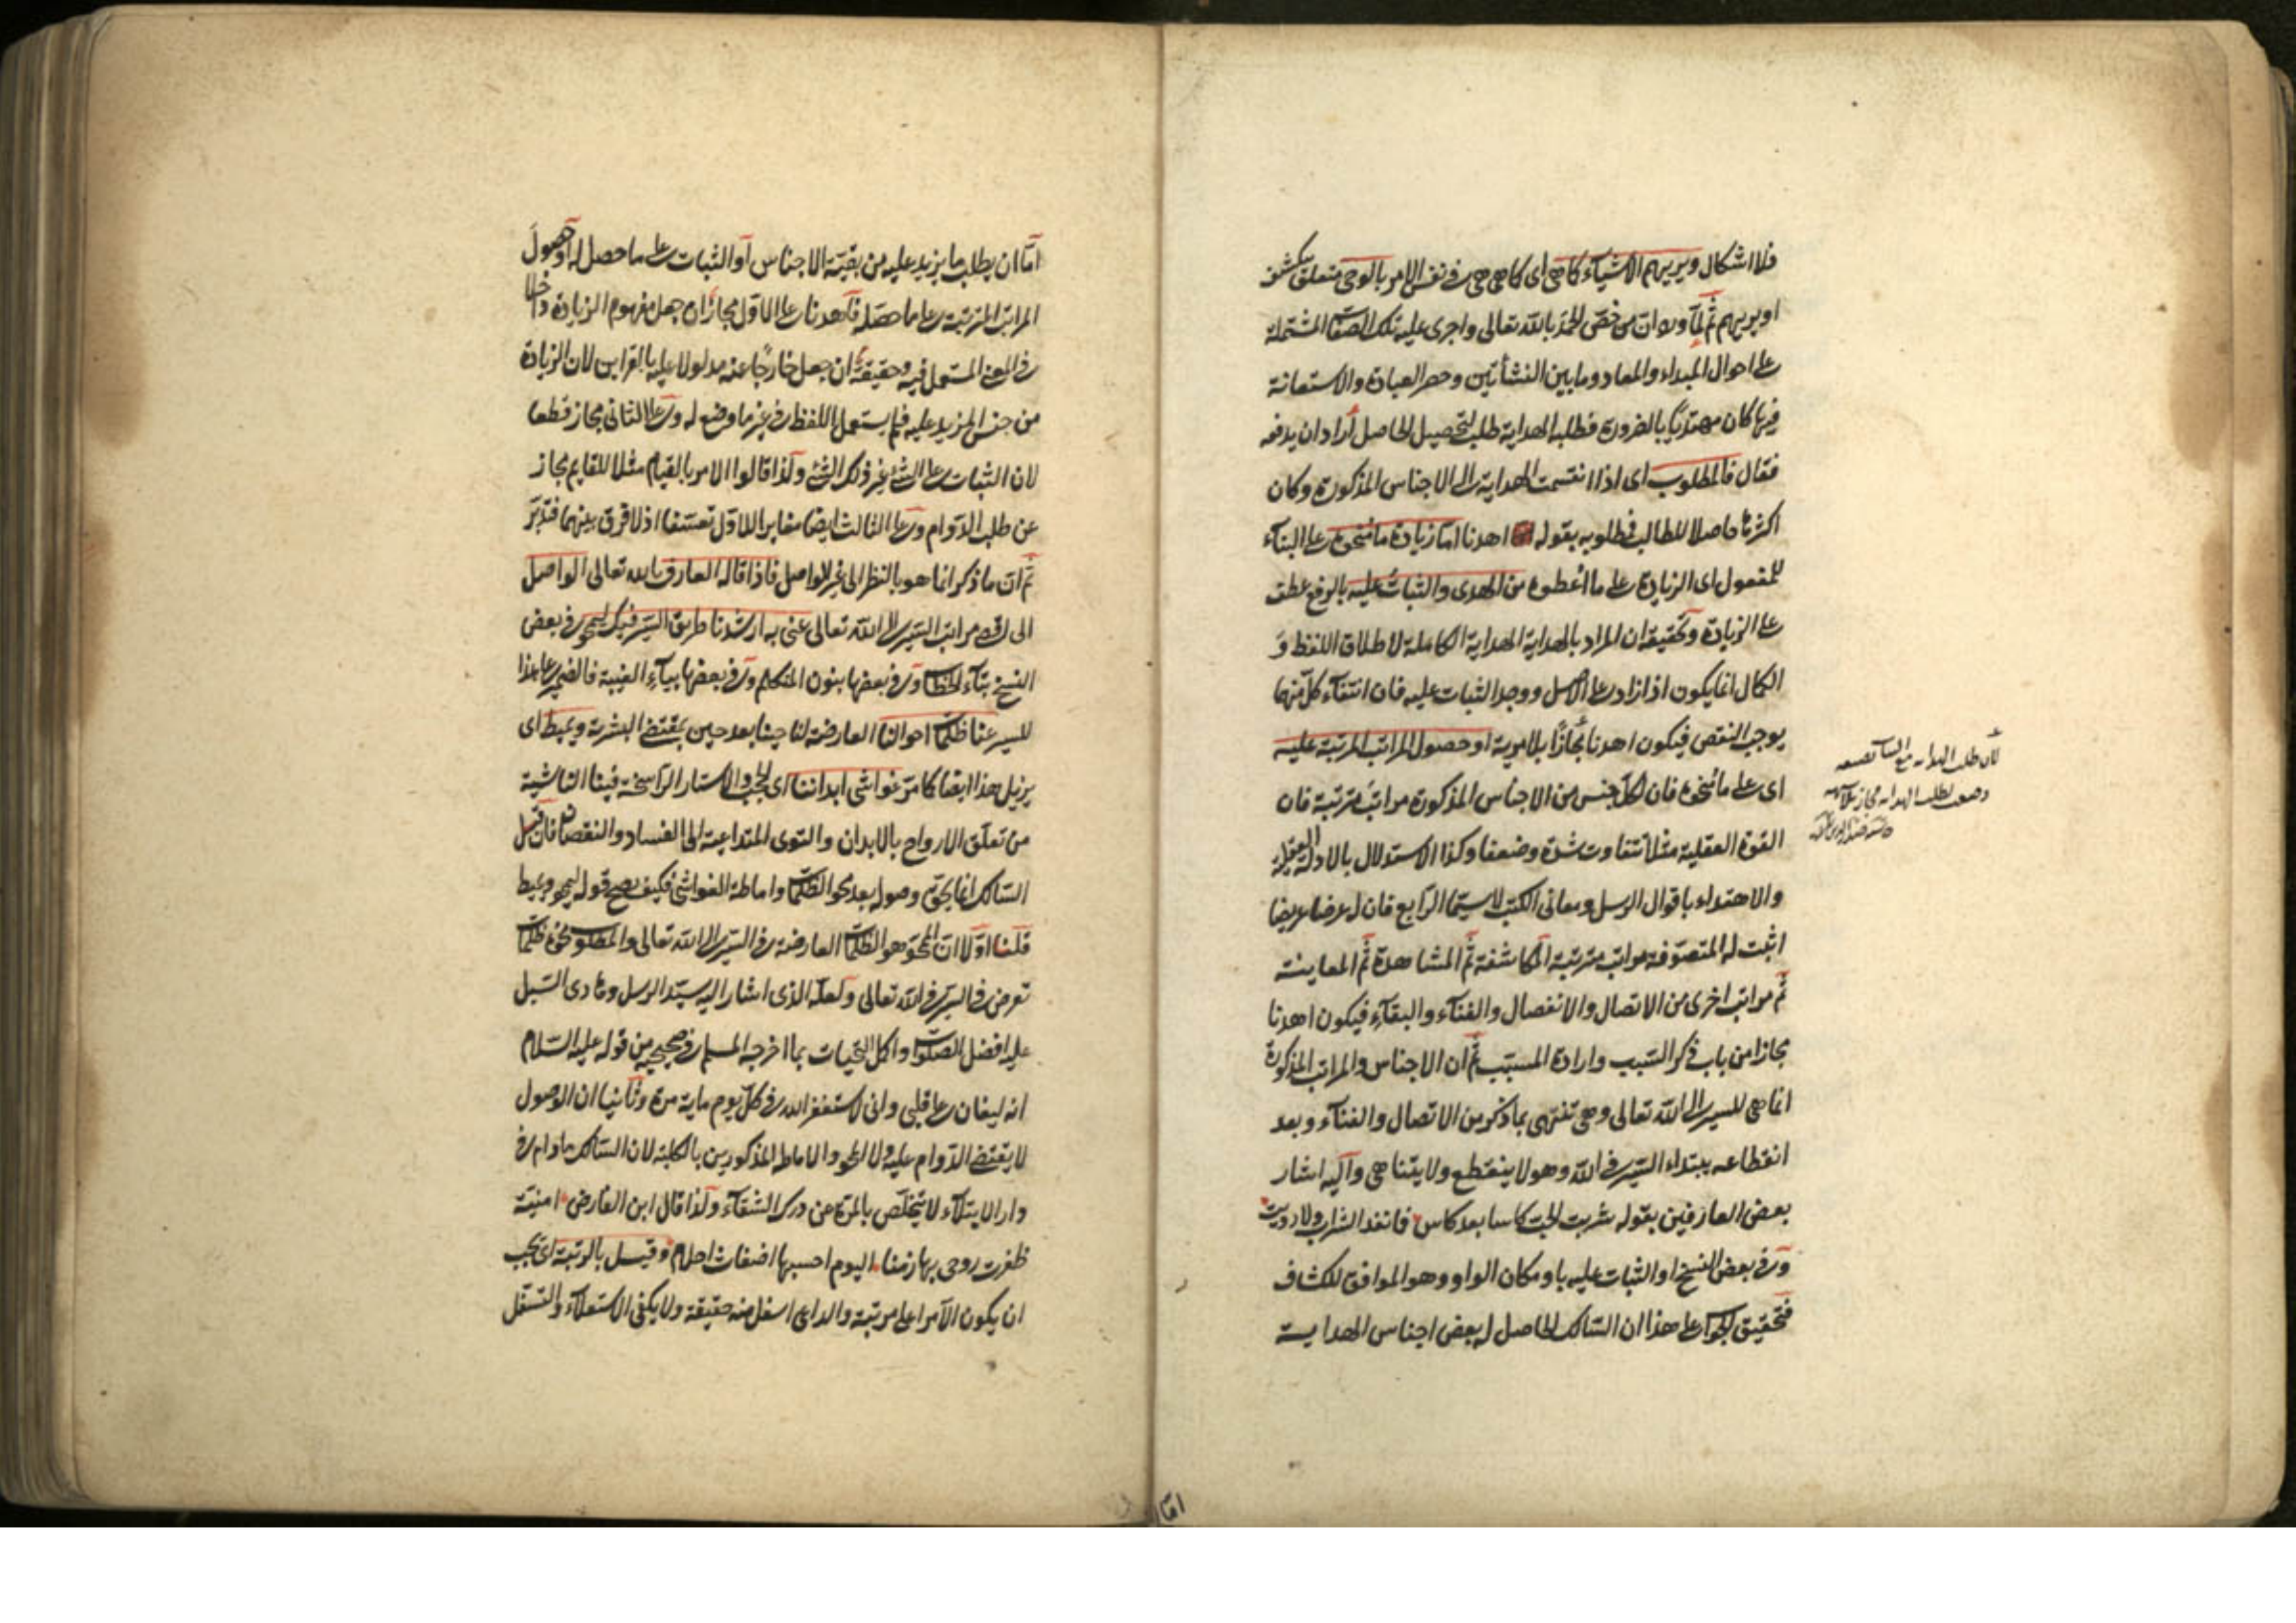 فلا اشكال ويريهم الاشياء كما هي اى كما هي هي في نفس الامر بالوحى متعلق بيكشف
او يريهم ثم لما ورد ان من خص الحمد بالله تعالى واجرى عليه تلك الصفات المشتملة
على احوال المبداء والمعاد وما بين النشأتين وحصر العبادة والاستعانة
فيها كان مهتديا بالضرورة فطلبه الهداية طلب لتحصيل الحاصل اراد ان يدفعه
فقال فالمطلوب اى اذا انقسمت الهداية الى الاجناس المذكورة وكان
اكثرها حاصلا للطالب فمطلوبه بقوله اهدنا اما زيادة ما منحوه على البناء
للمفعول اى الزيادة على ما اعطوه من الهدى والثبات عليه بالرفع عطف
على الزيادة وتحقيقه ان المراد بالهداية الهداية الكاملة لاطلاق اللفظ و
الكمال انما يكون اذا زاد على الاصل ووجد الثبات عليه فان انتفاء كل منهما
يوجب النقص فيكون اهدنا مجازا بلا مرية او حصول المراتب المرتبة عليه
اى على ما منحوه فان لكل جنس من الاجناس المذكورة مراتب مترتبة فان
القوة العقلية مثلا تتفاوت شدة وضعفا وكذا الاستدلال بالادلة العقلية
والاهتداء باقوال الرسل ومعانى الكتب لا سيما الرابع فان له عرضا عريضا
اثبت له المتصوفة مراتب مترتبة المكاشفة ثم المشاهدة ثم المعاينة
ثم مراتب اخرى من الاتصال والانفصال والفناء والبقاء فيكون اهدنا
مجازا من باب ذكر السبب وارادة المسبب ثم ان الاجناس والمراتب المذكورة
انما هي للسير الى الله تعالى وهى تنتهى بما ذكر من الاتصال والفناء وبعد
انقطاعه يبتداء السير في الله وهو لا ينقطع ولا يتناهى واليه اشار
بعض العارفين بقوله شربت الحب كاسا بعد كاس فما نفد الشراب ولا رويت
وفي بعض النسخ او الثبات عليه باو مكان الواو وهو الموافق للكشاف
فتحقيق الجواب على هذا ان السالك الحاصل له بعض اجناس الهداية
لان طلب الهداية مع
اما
اما ان يطلب ما يزيد عليه من بقية الاجناس او الثبات على ما حصل له او حصول
المراتب المترتبة على ما حصله فاهدنا على الاول مجاز ان جعل مفهوم الزيادة داخلا
في المعنى المستعمل فيه وحقيقة ان جعل خارجا عنه مدلولا عليه بالقراين لان الزيادة
من جنس المزيد عليه فلم يستعمل اللفظ في غير ما وضع له وعلى الثانى مجاز قطعا
لان الثبات على الشئ غير ذلك الشئ ولذا قالوا الامر بالقيام مثلا للقايم مجاز
عن طلب الدوام وعلى الثالث ايضا مغايرا للاول تعسفا اذ لا فرق بينهما فتدبر
ثم ان ما ذكر انما هو بالنظر الى غير الواصل فاذا قاله العارف بالله تعالى الواصل
الى اقصى مراتب السير الى الله تعالى عنى به ارشدنا طريق السير فيك لتمحو في بعض
النسخ بتاء الخطاب وفي بعضها بنون المتكلم وفي بعضها بياء الغيبة فالضمير على هذا
للسير عنا ظلمات احوالنا العارضة لنا حينا بعد حين بمقتضى البشرية ويميط اى
يزيل هذا ايضا كما مر غواشى ابداننا اى الحجب والاستار الراسخة فينا الناشية
من تعلق الارواح بالابدان والقوى المتداعية الى الفساد والنقصان فان قيل
السالك انما يحق وصوله بعد محو الظلمات واماطة الغواشى فكيف يصح قوله ليمحو ويميط
قلنا اولا ان الممحو هو الظلمات العارضة في السير الى الله تعالى والمطلوب محوه ظلمات
تعرض في السير في الله تعالى ولعله الذى اشار اليه سيد الرسل وهادى السبل
عليه افضل الصلوات واكمل التحيات بما اخرجه المسلم في صحيحه من قوله عليه السلام
انه ليغان على قلبى وانى لاستغفر الله في كل يوم ماية مرة وثانيا ان الوصول
لا يقتضى الدوام عليه ولا المحو والاماطة المذكورين بالكلية لان السالك مادام في
دار الابتلاء لا يتخلص بالمرة عن درك الشقاء ولذا قال ابن الفارض امنية
ظفرت روحى بها زمنا اليوم احسبها اضغاث احلام وقيل بالرتبة اى يجب
ان يكون الآمر اعلى مرتبة والداعى اسفل منه حقيقة ولا يكفى الاستعلاء والتسفل